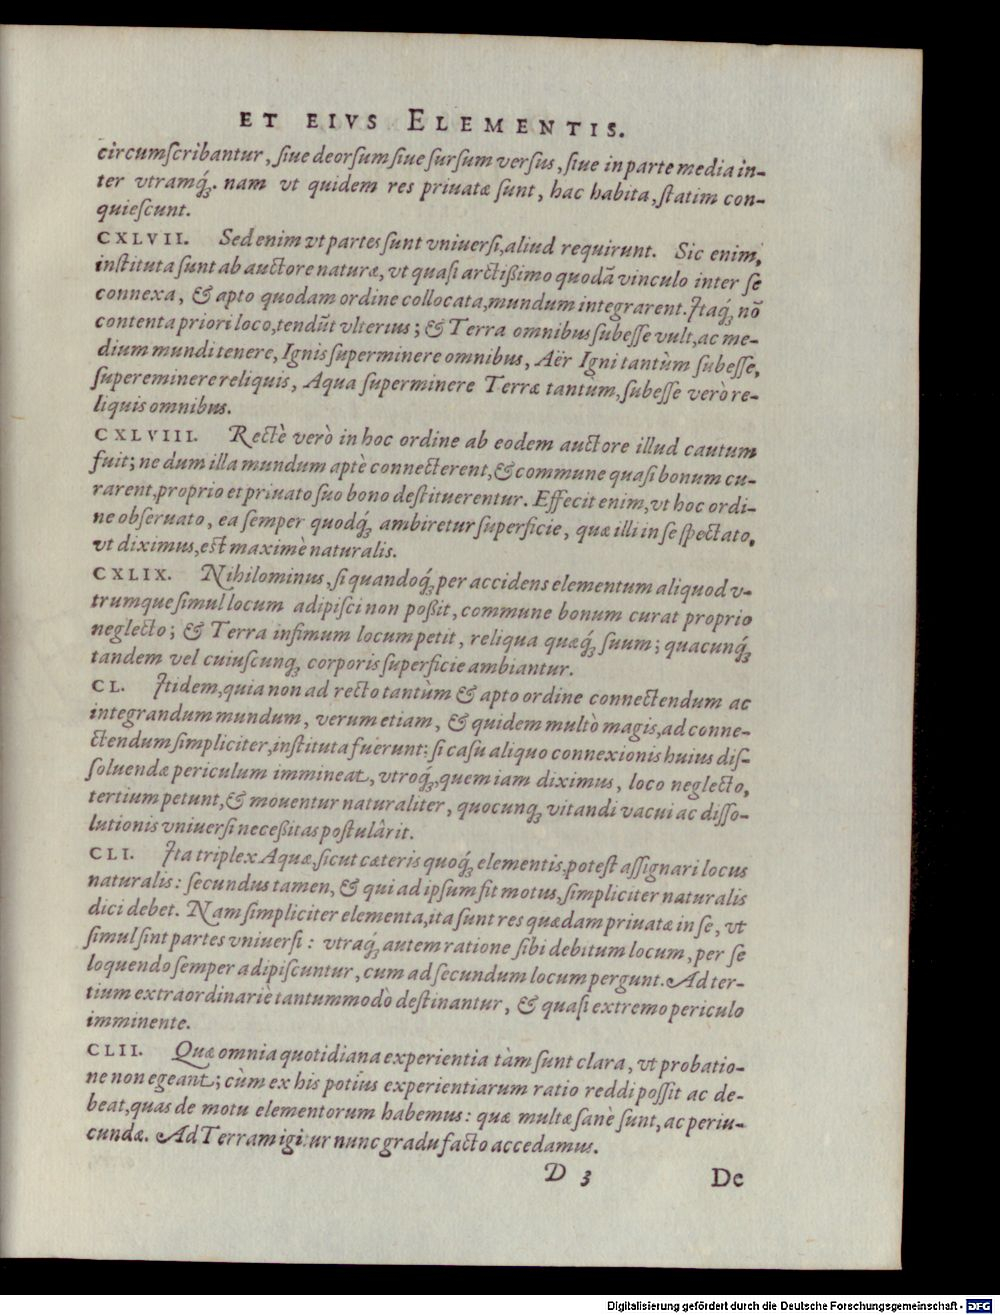 ET EIVS ELEMENTIS.
circumſcribantur, ſiue deorſum ſiue ſurſum verſus, ſiue in parte media in-
ter vtramq́ꝫ. nam vt quidem res priuatæ ſunt, hac habita, ſtatim con-
quieſcunt.
CXLVII. Sed enim vt partes ſunt vniuerſi, aliud requirunt. Sic enim,
inſtituta ſunt ab auctore naturæ, vt quaſi arctißimo quodā vinculo inter ſe
connexa, & apto quodam ordine collocata, mundum integrarent. Itaq́ꝫ nō
contenta priori loco, tendūt vlterius; & Terra omnibus ſubeſſe vult, ac me-
dium mundi tenere, Ignis ſuperminere omnibus, Aër Igni tantùm ſubeſſe,
ſupereminere reliquis, Aqua ſuperminere Terræ tantum, ſubeſſe verò re-
liquis omnibus.
CXLVIII. Rectè verò in hoc ordine ab eodem auctore illud cautum
fuit; ne dum illa mundum aptè connecterent, & commune quaſi bonum cu-
rarent, proprio et priuato ſuo bono deſtituerentur. Effecit enim, vt hoc ordi-
ne obſeruato, ea ſemper quodq́ꝫ ambiretur ſuperficie, quæ illi in ſe ſpectato,
vt diximus, eſt maximè naturalis.
CXLIX. Nihilominus, ſi quandoq́ꝫ per accidens elementum aliquod v-
trumque ſimul locum adipiſci non poßit, commune bonum curat proprio
neglecto; & Terra infimum locum petit, reliqua quæq́ꝫ ſuum; quacunq́ꝫ
tandem vel cuiuſcunqꝫ corporis ſuperficie ambiantur.
CL. Itidem, quia non ad recto tantùm & apto ordine connectendum ac
integrandum mundum, verum etiam, & quidem multò magis, ad conne-
ctendum ſimpliciter, inſtituta fuerunt: ſi caſu aliquo connexionis huius diſ-
ſoluendæ periculum immineat, vtroq́ꝫ, quem iam diximus, loco neglecto,
tertium petunt, & mouentur naturaliter, quocunqꝫ vitandi vacui ac diſſo-
lutionis vniuerſi neceßitas poſtulârit.
CLI. Ita triplex Aquæ, ſicut cæteris quoq́ꝫ elementis, poteſt aſſignari locus
naturalis: ſecundus tamen, & qui ad ipſum fit motus, ſimpliciter naturalis
dici debet. Nam ſimpliciter elementa, ita ſunt res quædam priuatæ in ſe, vt
ſimul ſint partes vniuerſi: vtraq́ꝫ autem ratione ſibi debitum locum, per ſe
loquendo ſemper adipiſcuntur, cum ad ſecundum locum pergunt. Ad ter-
tium extraordinariè tantummodò deſtinantur, & quaſi extremo periculo
imminente.
CLII. Quæ omnia quotidiana experientia tàm ſunt clara, vt probatio-
ne non egeant; cùm ex his potius experientiarum ratio reddi poſſit ac de-
beat, quas de motu elementorum habemus: quæ multæ ſanè ſunt, ac periu-
cundæ. Ad Terram igi ur nunc gradu facto accedamus.
D 3 De
Digitalisierung gefördert durch die Deutsche Forschungsgemeinschaft - DFG